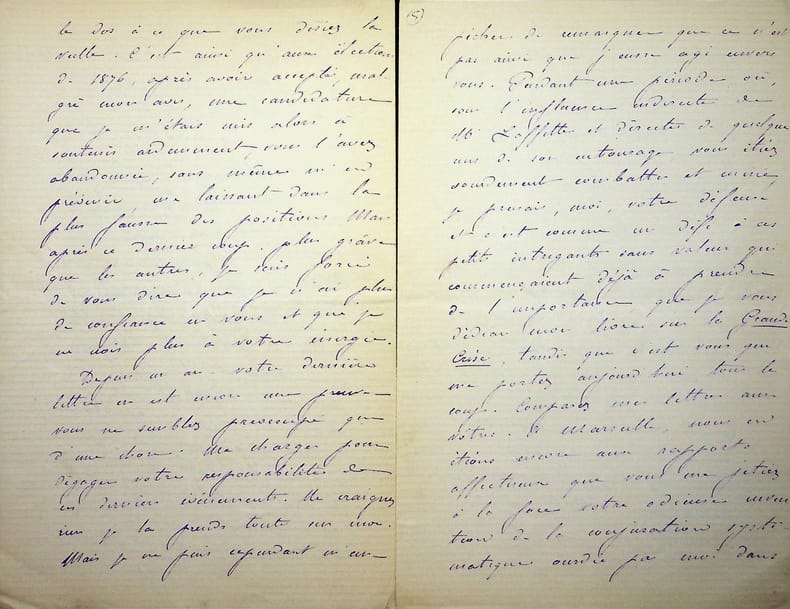 le dos à ce que vous disiez la
veille. C'est ainsi qu'aux élections
de 1876, après avoir accepté, mal-
gré mon avis, une candidature
que je m'étais mis alors à
soutenir ardemment, vous l'avez
abandonnée, sans même m'en
prévenir, me laissant dans la
plus fausse des positions. Mais
après ce dernier coup, plus grave
que les autres, je suis forcé
de vous dire que je n'ai plus
de confiance en vous et que je
ne crois plus à votre énergie.
Depuis un an votre dernière
lettre en est encore une preuve
vous ne semblez préoccupé que
d'une chose: me charger pour
dégager votre responsabilité de
ces derniers événements. Ne craignez
rien je la prends toute sur moi.
Mais je ne puis cependant m'em-
(5)
pêcher de remarquer que ce n'est
pas ainsi que j'eusse agi envers
vous. Pendant une période où,
sous l'influence indirecte de
Mr Laffitte et directe de quelques
uns de son entourage vous étiez
sourdement combattu et miné,
je prenais, moi, votre défense
et c'est comme un défi à ces
petits intrigants sans valeur qui
commençaient déjà à prendre
de l'importance que je vous
dédiai mon livre sur la Grande
Crise, tandis que c'est vous qui
me portez aujourd'hui tous les
coups. Comparez mes lettres aux
vôtres. A Marseille, nous en
étions encore aux rapports
affectueux que vous me jetiez
à la face votre odieuse inven
tion de la conjuration systé-
matique ourdie par moi dans